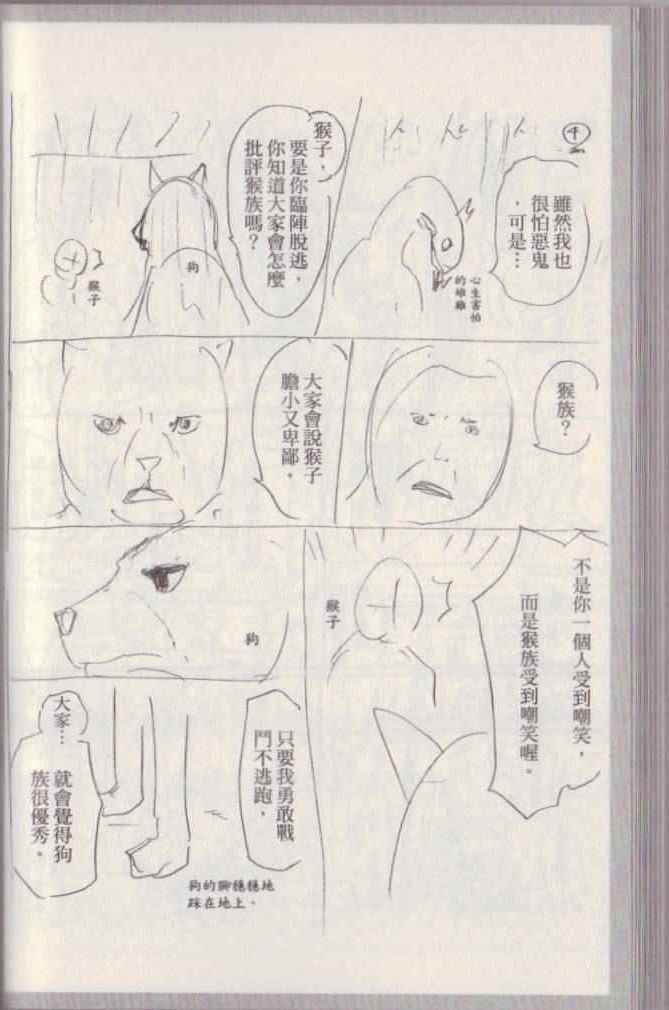 ④
雖然我也
很怕惡鬼
，可是…
心生害怕
的雉雞
猴子，
要是你臨陣脫逃，
你知道大家會怎麼
批評猴族嗎？
狗
猴子
猴族？
大家會說猴子
膽小又卑鄙。
不是你一個人受到嘲笑，
而是猴族受到嘲笑喔。
猴子
狗
只要我勇敢戰
鬥不逃跑，
大家…
就會覺得狗
族很優秀。
狗的腳穩穩地
踩在地上。